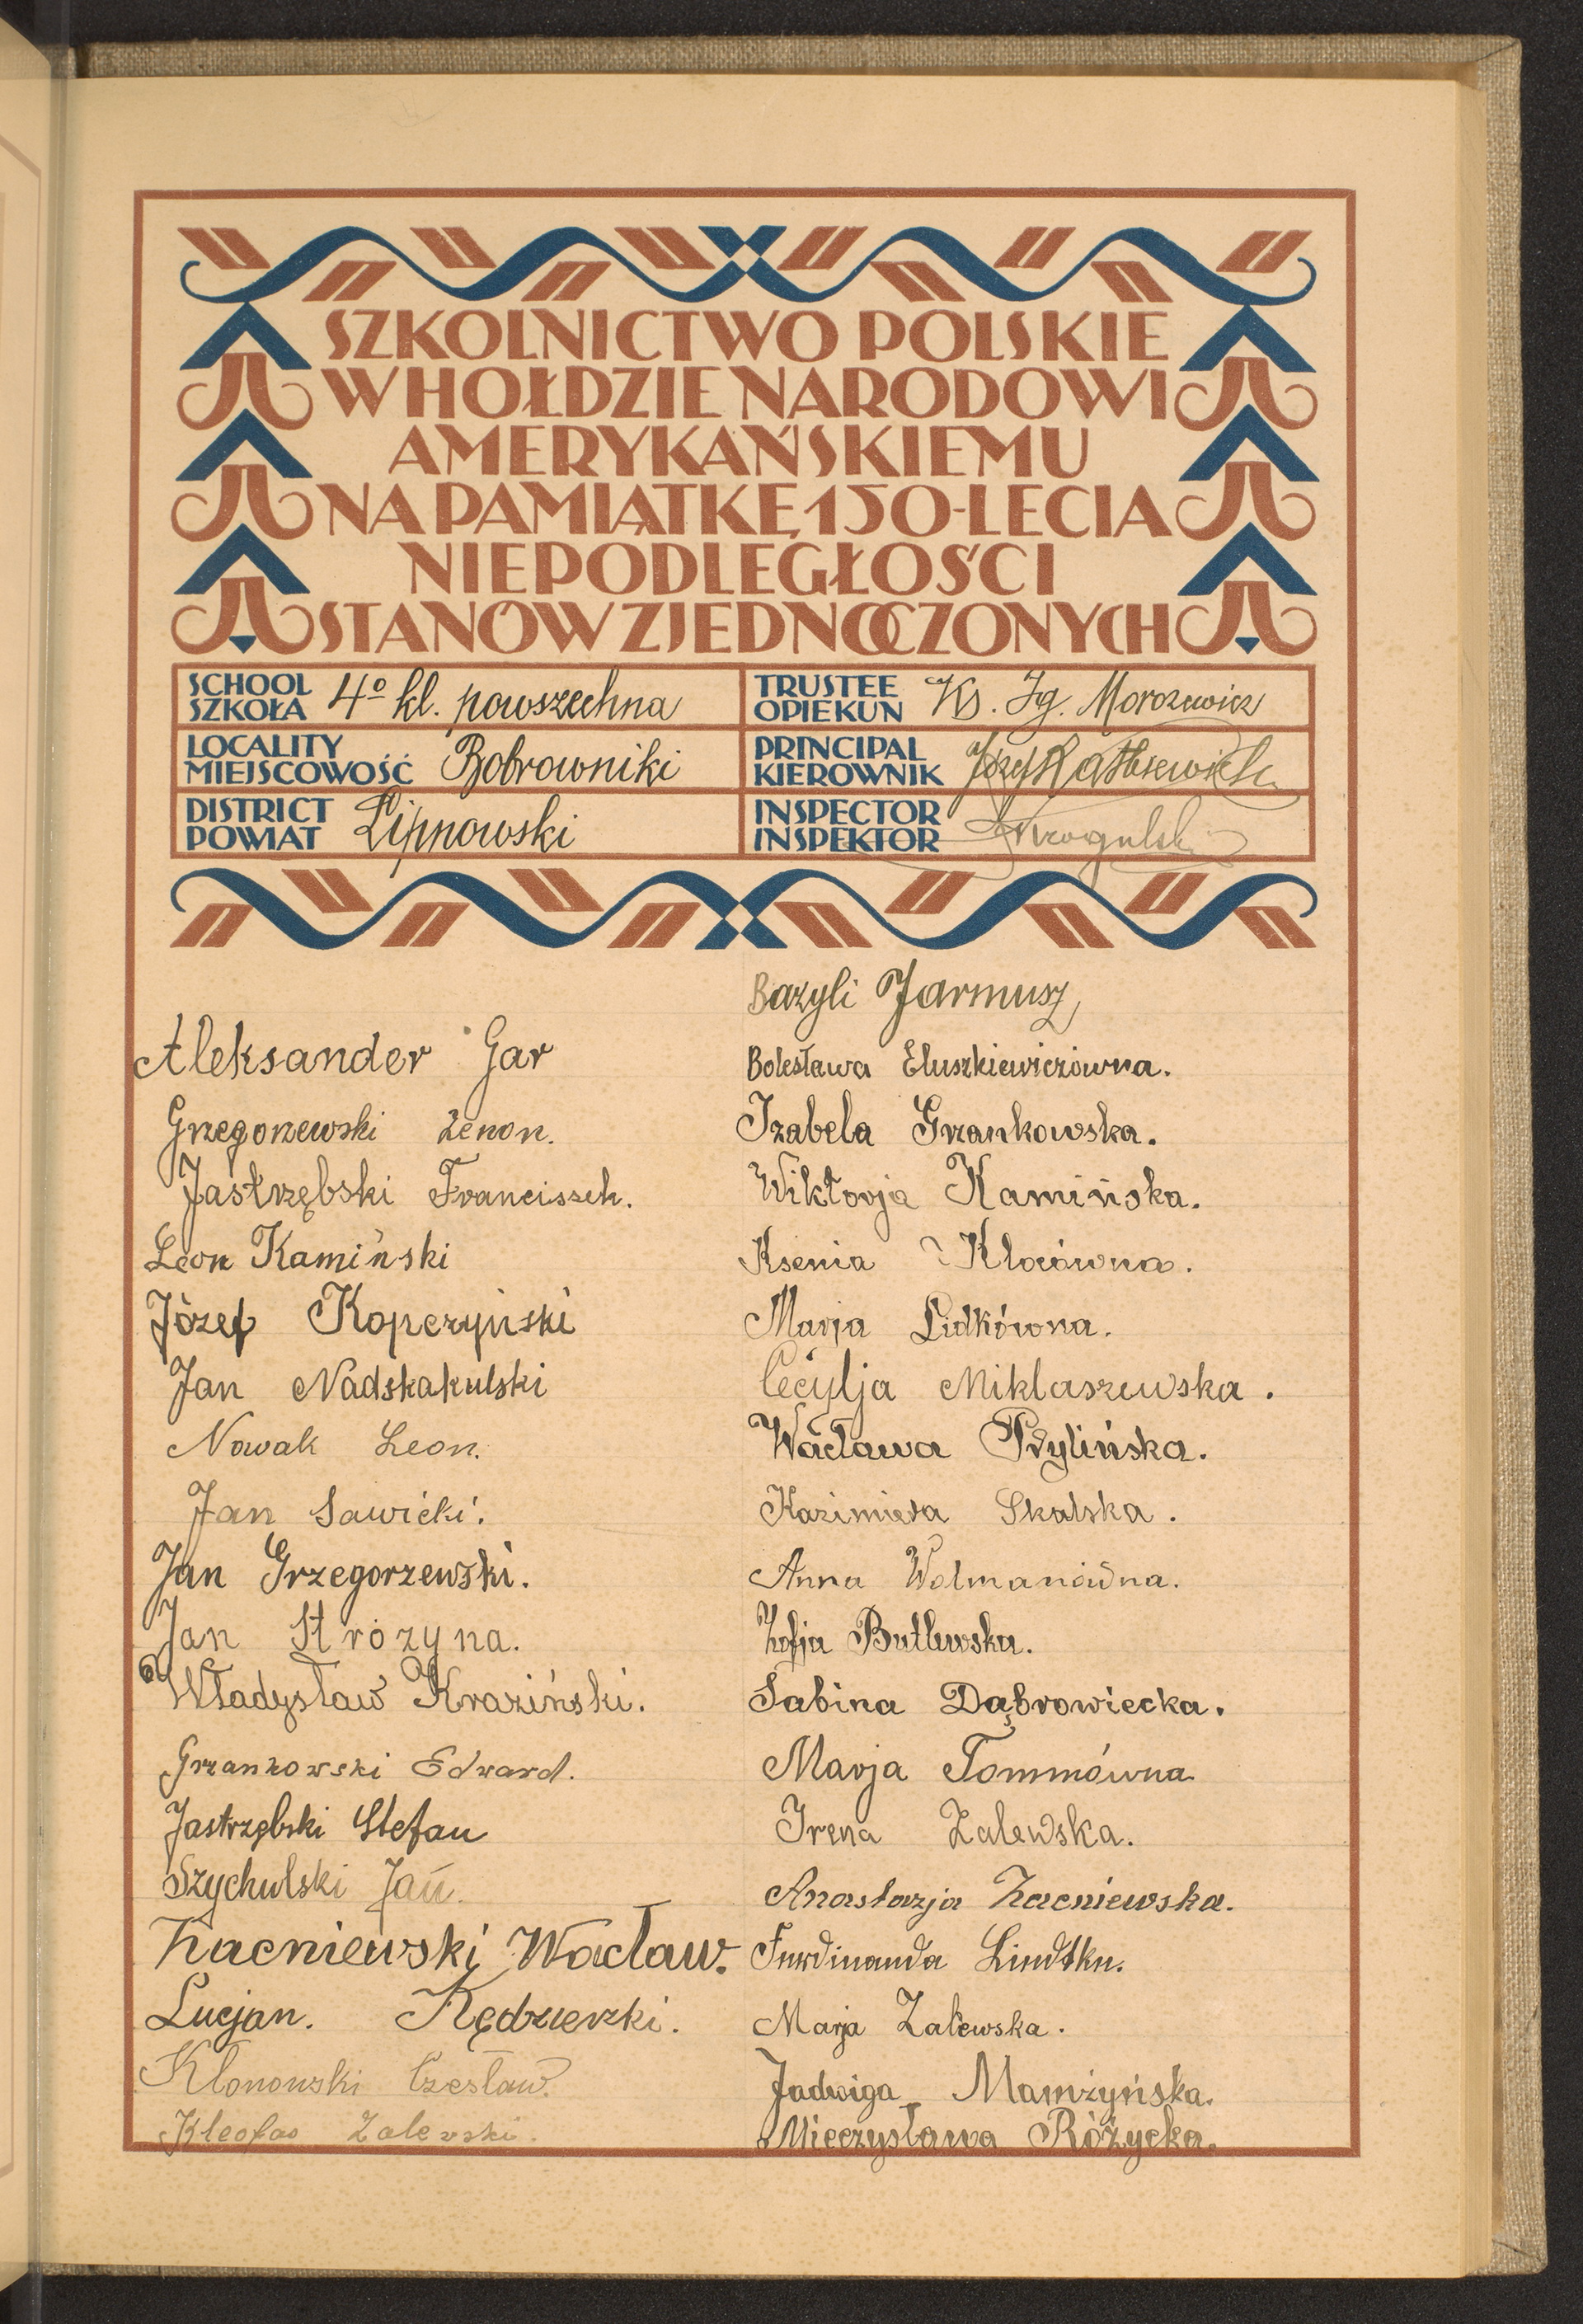 SZKOLNICTWO POLSKIE
W HOŁDZIE NARODOWI
AMERYKAŃSKIEMU
NA PAMIĄTKĘ 150-LECIA
NIEPODLEGŁOŚCI
STANÓW ZJEDNOCZONYCH
SCHOOL
SZKOŁA 4º kl. powszechna
LOCALITY
MIEJSCOWOŚĆ Bobrowniki
DISTRICT
POWIAT Lipnowski
TRUSTEE
OPIEKUN Ks. Ig. Morozewicz
PRINCIPAL
KIEROWNIK Józef
INSPECTOR
INSPEKTOR
Aleksander Gar
Grzegorzewski Zenon.
Jastrzębski Franciszek.
Leon Kamiński
Józef Kopczyński
Jan Nadskakulski
Nowak Leon.
Jan Sawicki.
Jan Grzegorzewski.
Jan Strózyna.
Władysław Kraziński.
Grzankowski Edward.
Jastrzębski Stefan
Szychulski Jan.
Żacniewski Wacław.
Lucjan. Kędzierski.
Klonowski Czesław.
Kleofas Zalewski.
Bazyli Jarmusz
Bolesława Eluszkiewiczówna.
Izabela Grzankowska.
Wiktorja Kamińska.
Ksenia Klocówna.
Marja Lidkówna.
Cecylja Miklaszewska.
Wacława Prylińska.
Kazimiera Skalska.
Anna Wolmanówna.
Zofja Butlewska.
Sabina Dąbrowiecka.
Marja Tommówna
Irena Zalewska.
Anastazja Żacniewska.
Ferdinanda
Marja Zalewska.
Jadwiga Mamżyńska.
Mieczysława Różycka.